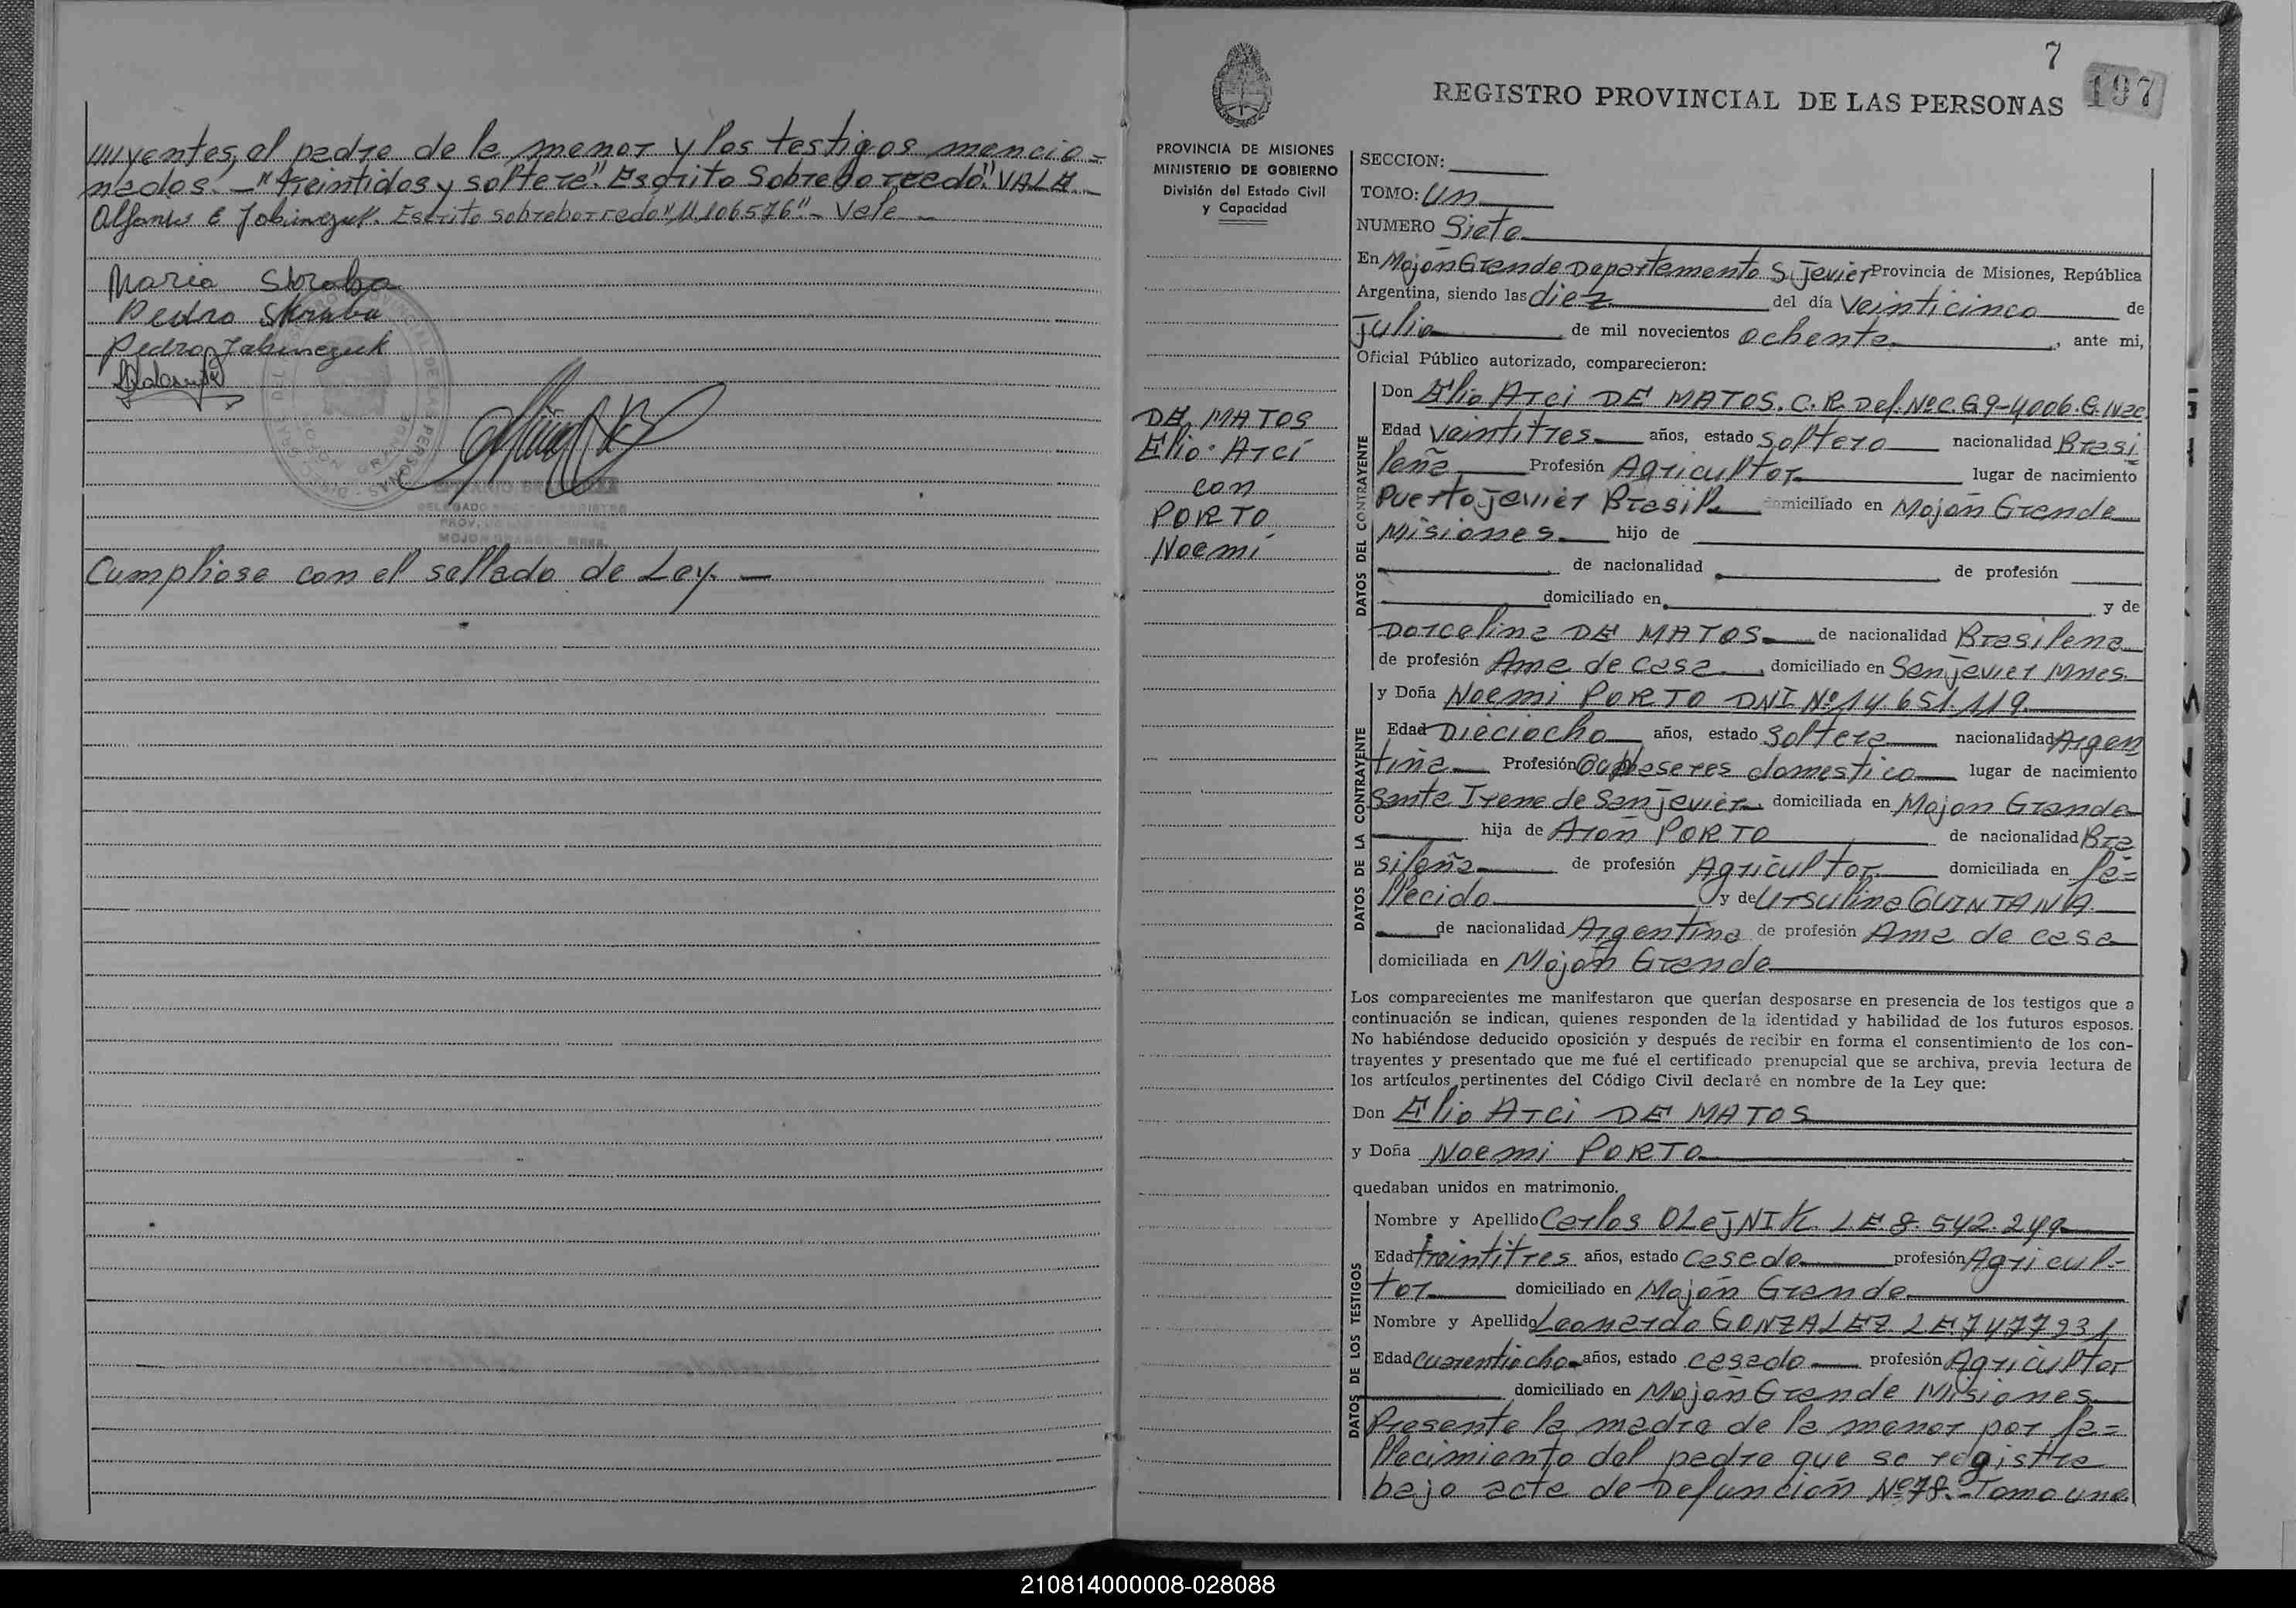 yentes, al padre de la menor y los testigos mencio=
nados.-"treintidos y soltera". Escrito Sobreborreado. "VALE.-
Escrito sobreborreado "11.106576"- Vale -
Maria Skraba
Pedro Skraba
Pedro
Cumpliose con el sellado de Ley. -
7
197
REGISTRO PROVINCIAL DE LAS PERSONAS
PROVINCIA DE MISIONES
MINISTERIO DE GOBIERNO
División del Estado Civil
y Capacidad
DE MATOS
Elio Arci
con
PORTO
Noemi
SECCION:
TOMO: Un
NUMERO Siete
En Mojón Grande Departamento S. Javier Provincia de Misiones, República
Argentina, siendo las diez del día Veinticinco de
Julio de mil novecientos ochenta, ante mi,
Oficial Público autorizado, comparecieron:
DATOS DEL CONTRAYENTE
Don Elio Arci DE MATOS. C.R. Def. Nº C.G9-4006.G.
Edad Veintitres años, estado soltero nacionalidad Brasi
leña Profesión Agricultor lugar de nacimiento
Puerto Javier Brasil domiciliado en Mojón Grande
Misiones hijo de
de nacionalidad de profesión
domiciliado en y de
Dorcelina DE MATOS de nacionalidad Brasilena
de profesión Ama de casa domiciliado en San Javier Mnes.
DATOS DE LA CONTRAYENTE
y Doña Noemi PORTO DNI Nº 14.651.119
Edad Dieciocho años, estado Soltera nacionalidad Argen
tina Profesión queaseres domestico lugar de nacimiento
Santa Irene de San Javier domiciliada en Mojon Grande
hija de Aron PORTO de nacionalidad Bra
sileña de profesión Agricultor domiciliada en fa=
llecido y de Ursulina QUINTANA
de nacionalidad Argentina de profesión Ama de casa
domiciliada en Mojón Grande
Los comparecientes me manifestaron que querían desposarse en presencia de los testigos que a
continuación se indican, quienes responden de la identidad y habilidad de los futuros esposos.
No habiéndose deducido oposición y después de recibir en forma el consentimiento de los con-
trayentes y presentado que me fué el certificado prenupcial que se archiva, previa lectura de
los artículos pertinentes del Código Civil declaré en nombre de la Ley que:
Don Elio Arci DE MATOS
y Doña Noemi PORTO
quedaban unidos en matrimonio.
DATOS DE LOS TESTIGOS
Nombre y Apellido Carlos OLEJNIK. L.E.8.542.249
Edad treintitres años, estado casado profesión Agricul-
tor domiciliado en Mojón Grande
Nombre y Apellido Leonardo GONZALEZ LE 7477931
Edad Cuarentiocho años, estado casado profesión Agricultor
domiciliado en Mojón Grande Misiones
Presente la madre de la menor por fa=
llecimiento del padre que se registra
bajo acta de Defunción Nº 78.-Tomo uno
210814000008-028088